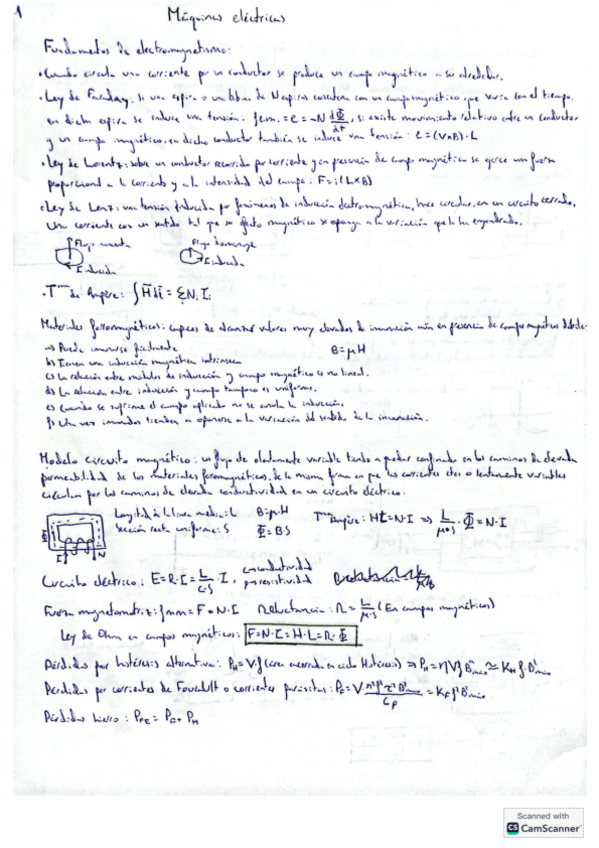 1
Máquinas eléctricas
Fundamentos de electromagnetismo:
• Cuando circula una corriente por un conductor se produce un campo magnético a su alrededor.
• Ley de Faraday: si una espira o un bobina de N espiras concatena con un campo magnético que varía con el tiempo,
en dicha espira se induce una tensión: fem. = e = -N dΦ/dt, si existe movimiento relativo entre un conductor
y un campo magnético, en dicho conductor también se induce una tensión: e = (V×B)·L
• Ley de Lorentz: sobre un conductor recorrido por corriente y en presencia de campo magnético se ejerce una fuerza
proporcional a la corriente y a la intensidad del campo: F = i(L×B)
• Ley de Lenz: una tensión inducida por fenómenos de inducción electromagnética, hace circular, en un circuito cerrado,
una corriente con un sentido tal que su efecto magnético se oponga a la variación que la ha engendrado.
Flujo aumenta
Flujo disminuye
I inducida
Inducida
• Tma de Ampère: ∫H dl = ΣN·I
Materiales ferromagnéticos: capaces de alcanzar valores muy elevados de inducción aún en presencia de campo magnéticos débiles
a) Puede imanarse fácilmente
B=μH
b) Tienen una inducción magnética intrínseca
c) La relación entre módulos de inducción y campo magnético no lineal.
d) La relación entre inducción y campo tampoco es uniforme.
e) Cuando se suprime el campo aplicado no se anula la inducción.
f) Una vez imanados tienden a oponerse a la variación del sentido de la imanación.
Modelo circuito magnético: un flujo de lentamente variable tiende a quedar confinado en los caminos de elevada
permeabilidad de los materiales ferromagnéticos, de la misma forma en que las corrientes ctes o lentamente variables
circulan por los caminos de elevada conductividad en un circuito eléctrico.
Longitud de la línea media: L
B=μ·H
Tma Ampère: HL=N·I ⇒ L/μ·S · Φ = N·I
Sección recta uniforme: S
Φ=BS
I
N
Circuito eléctrico: E=R·I = L/σ·S · I,
σ=conductividad
ρ=resistividad
Fuerza magnetomotriz: fmm = F = N·I
Reluctancia: R = L/μ·S (En campos magnéticos)
Ley de Ohm en campos magnéticos: F=N·I=H·L=R·Φ
Pérdidas por histéresis alternativa: PH = V·f (área encerrada en ciclo Histéresis) ⇒
Pérdidas por corrientes de Foucault o corrientes parásitas:
Pérdidas hierro: PFE = PE + PH
Scanned with
CS CamScanner